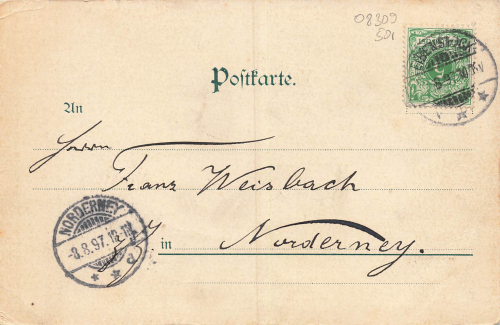 08309
501
Postkarte.
An
Herrn
Franz Weisbach
in Norderney.
NORDERNEY
-8.8.97.